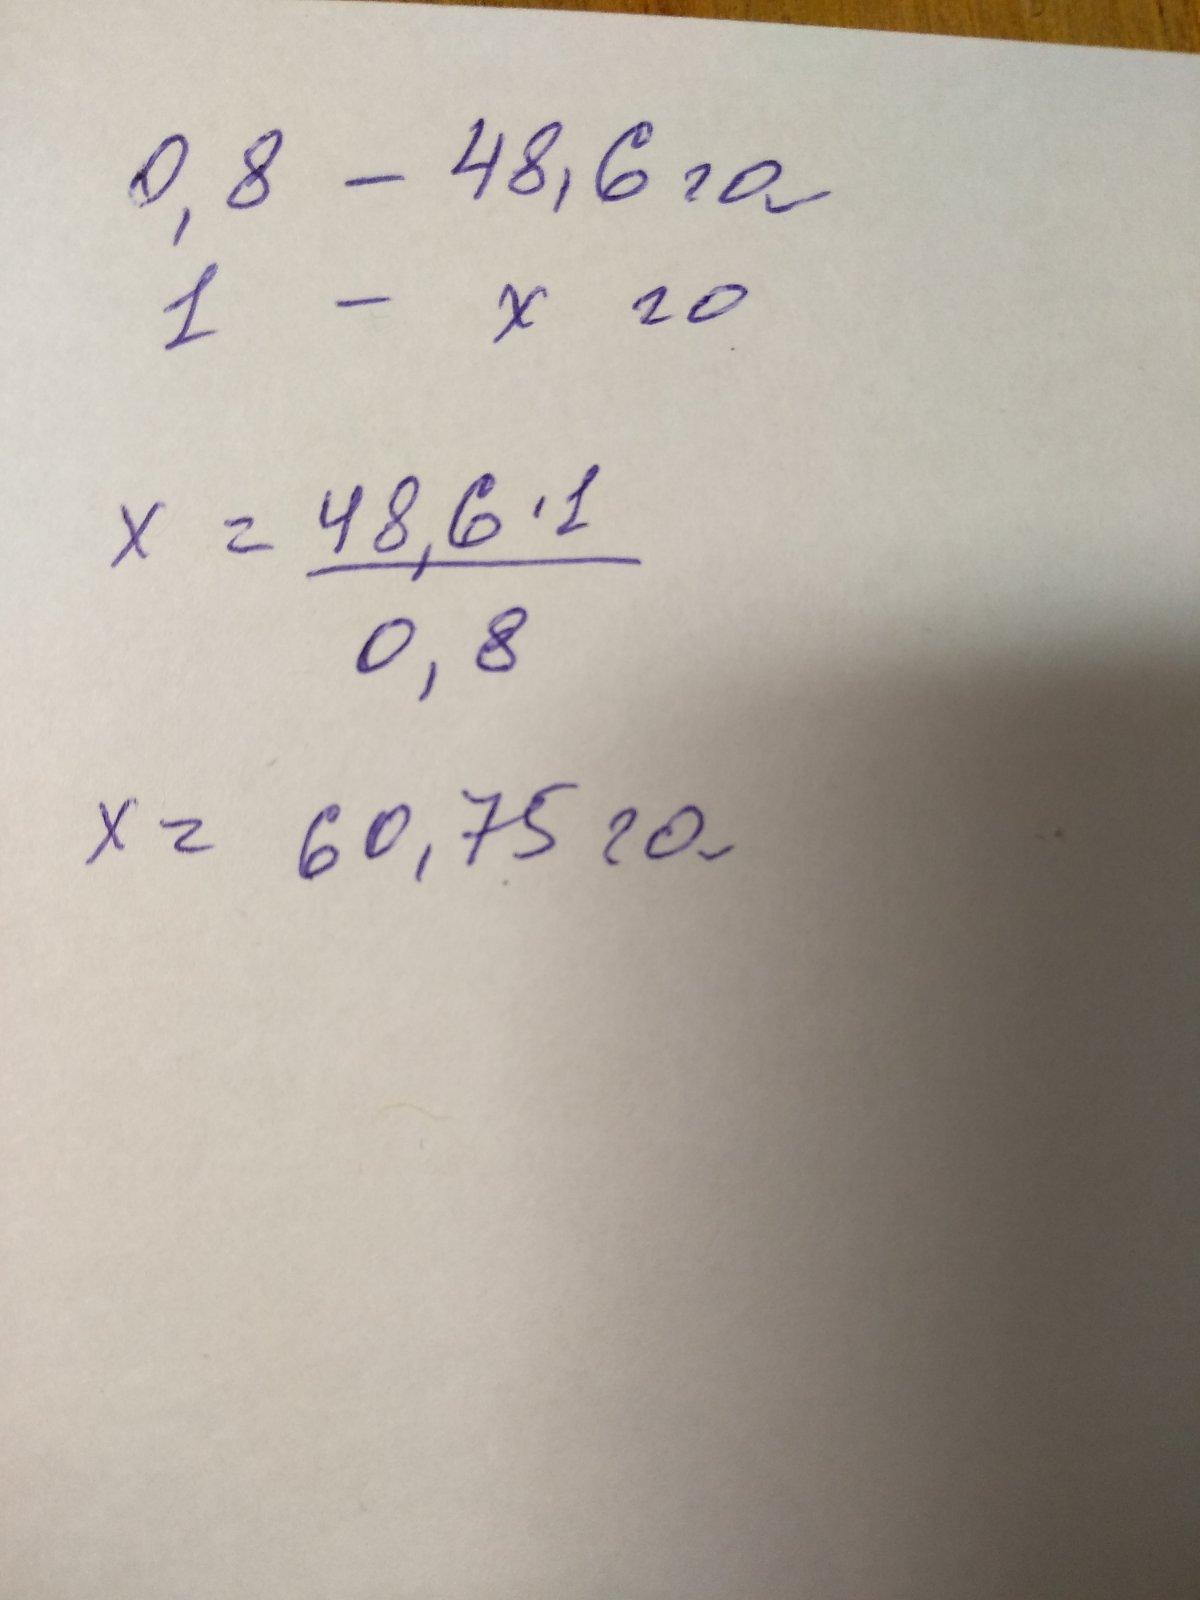 0,8 - 48,6 га
1 - x га
x = 48,6 · 1
0,8
x = 60,75 га